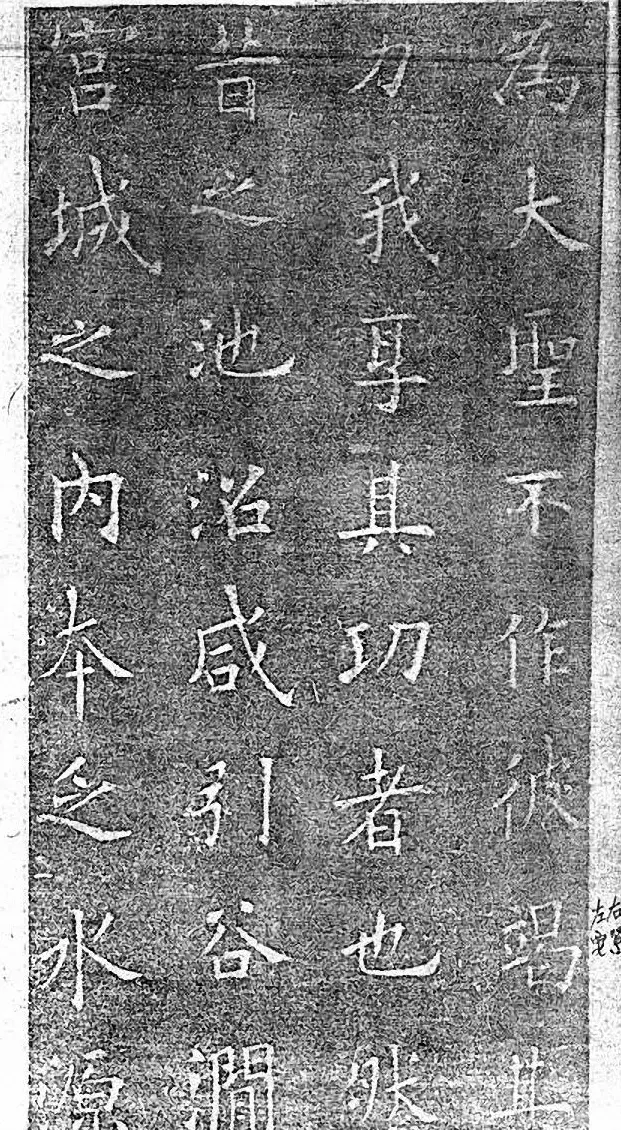 為大聖不作彼竭其
力我享其功者也然
昔之池沼咸引谷澗
宮城之内本乏水源